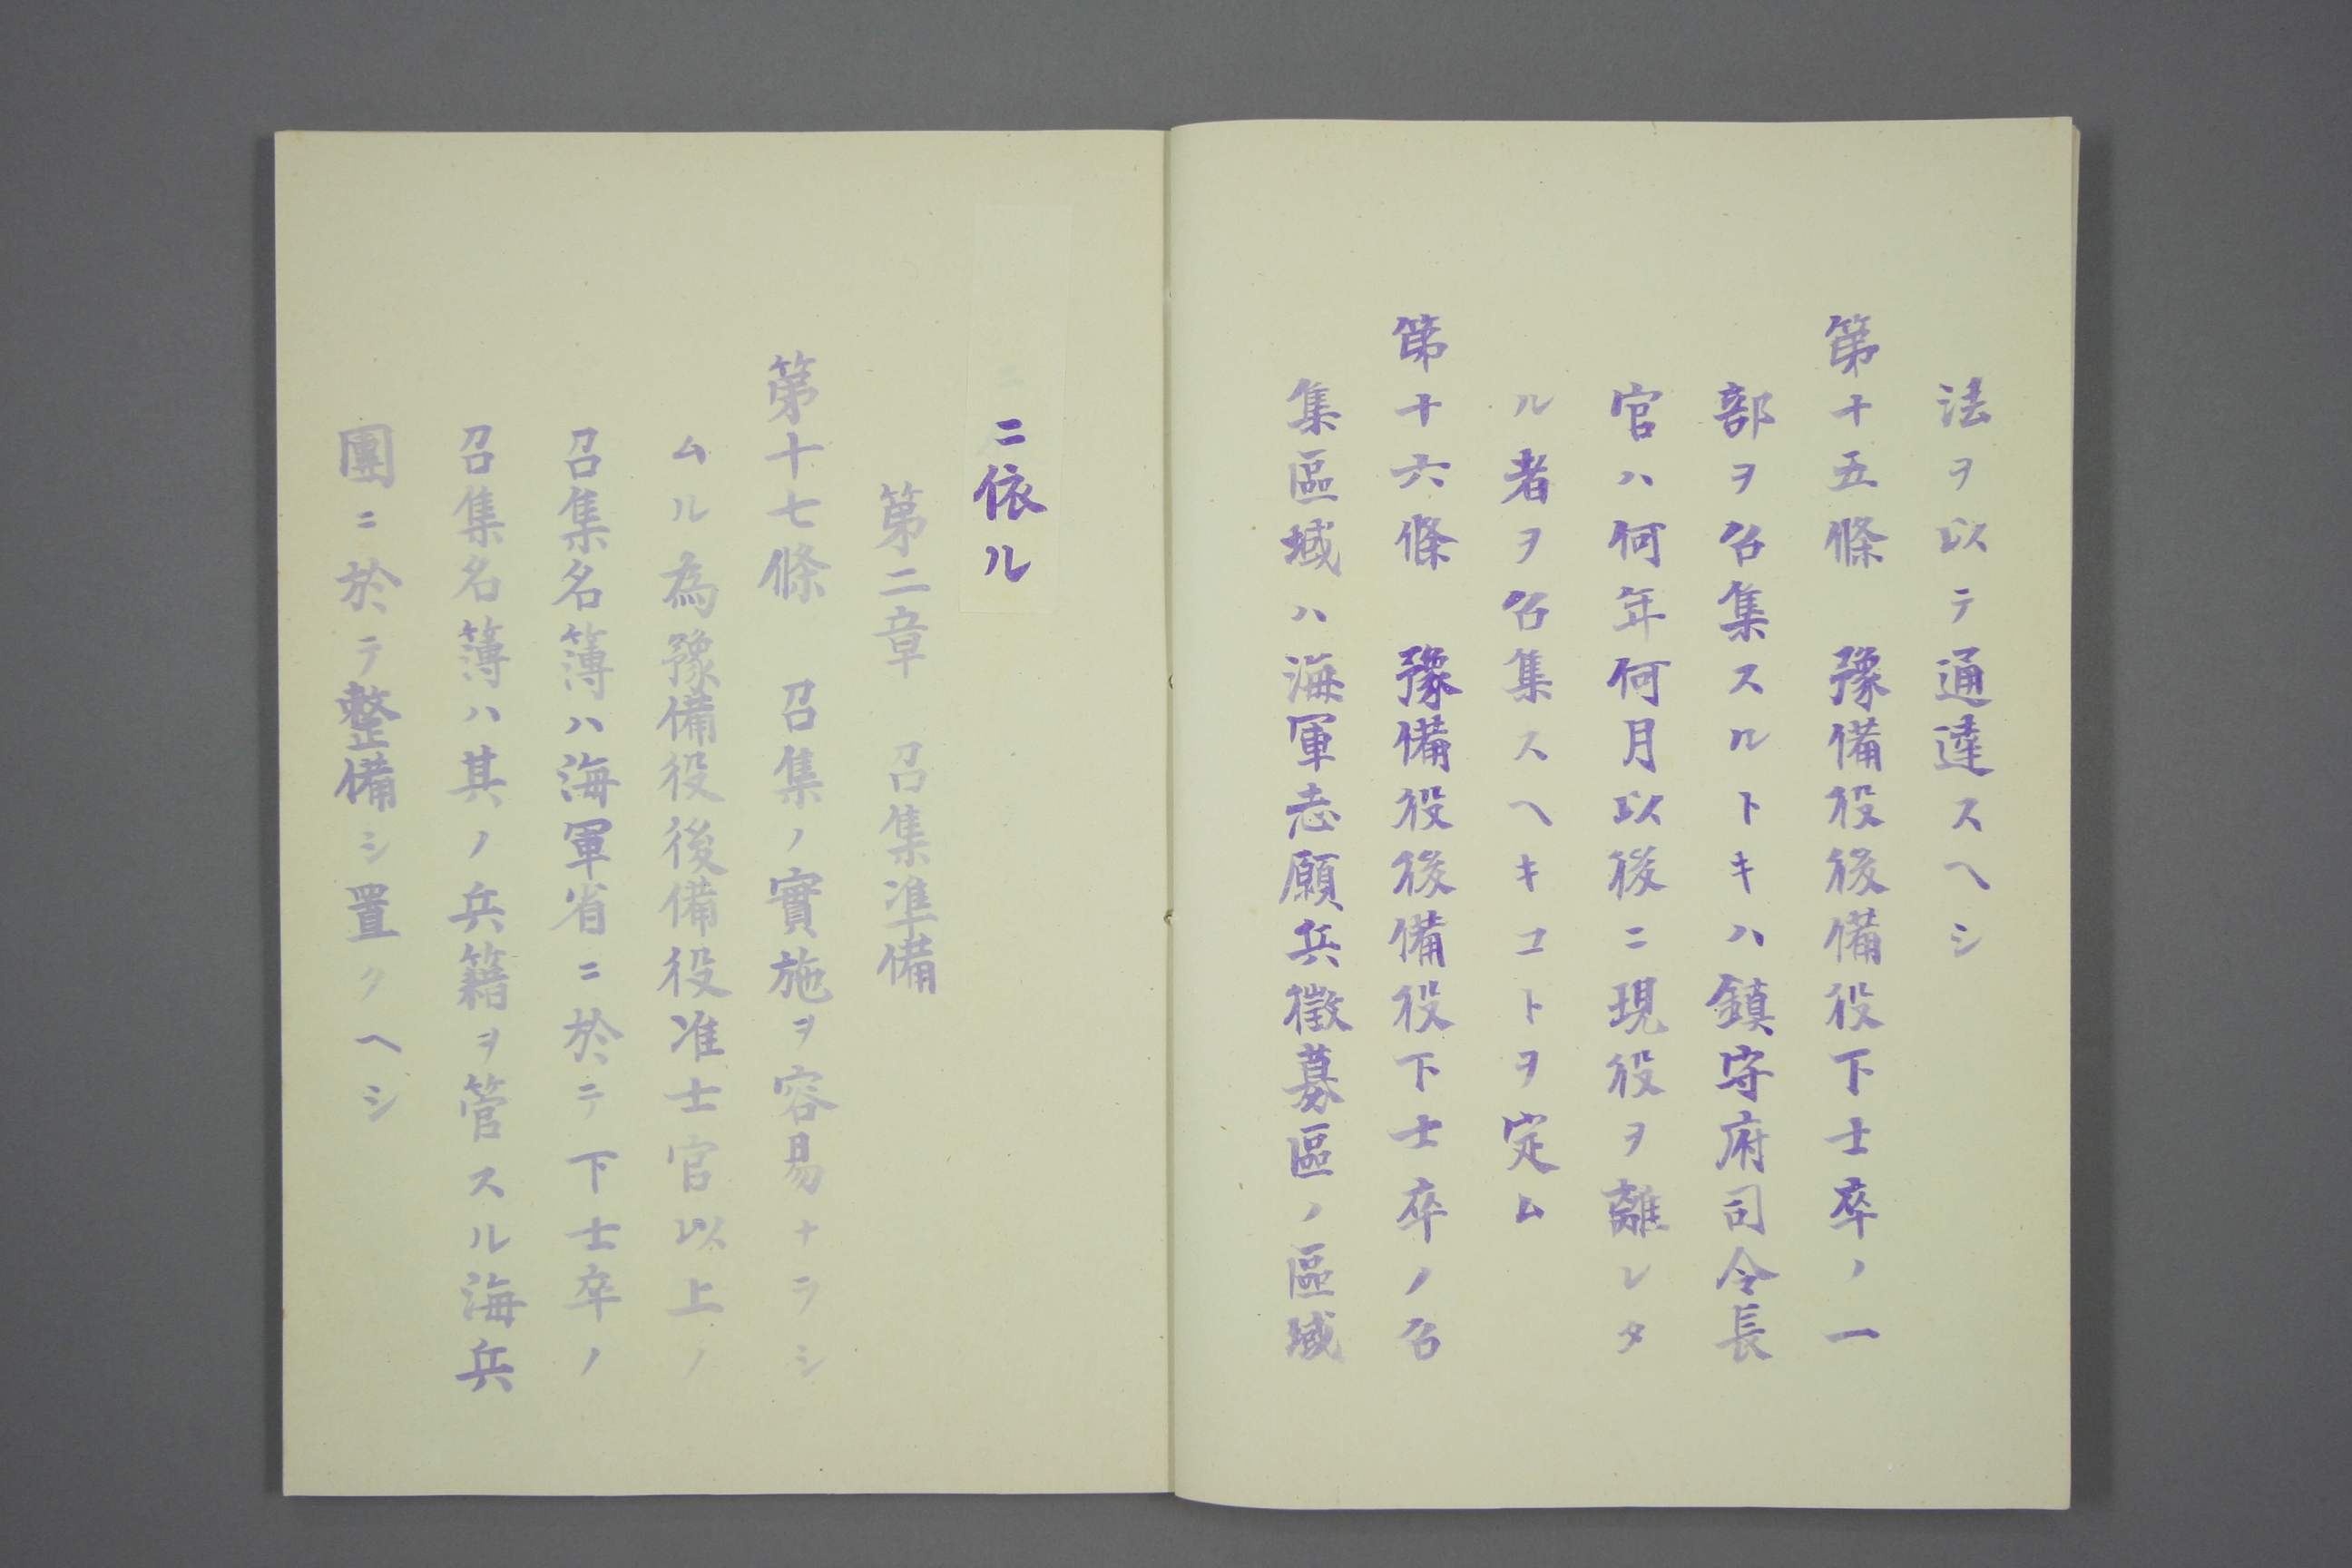 法ヲ以テ通達スヘシ
第十五條 豫備役後備役下士卒ノ一
部ヲ召集スルトキハ鎮守府司令長
官ハ何年何月以後ニ現役ヲ離レタ
ル者ヲ召集スヘキコトヲ定ム
第十六條 豫備役後備役下士卒ノ召
集區域ハ海軍志願兵徴募區ノ區域
ニ依ル
第二章 召集準備
第十七條 召集ノ實施ヲ容易ナラシ
ムル為豫備役後備役准士官以上ノ
召集名簿ハ海軍省ニ於テ下士卒ノ
召集名簿ハ其ノ兵籍ヲ管スル海兵
團ニ於テ整備シ置クヘシ